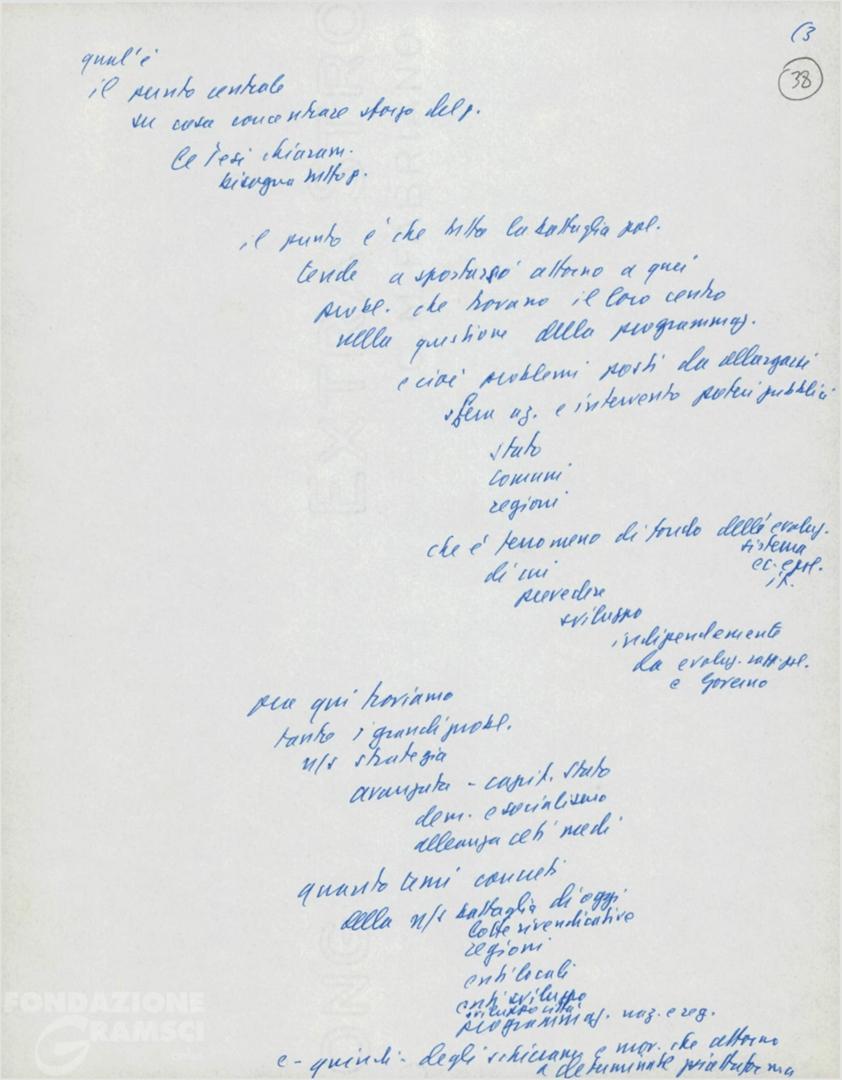 (3
38
qual'è
il punto centrale
su cosa concentrare sforzo del p.
Le Tesi chiaram.
bisogna
il punto è che tutta la battaglia pol.
tende a spostarsi attorno a quei
probl. che trovano il loro centro
nella questione della programmaz.
e cioè problemi posti da allargarsi
sfera az. e intervento poteri pubblici
stato
comuni
regioni
che è fenomeno di fondo dell'evoluz.
sistema
ec. e pol.
it.
di cui
prevedere
sviluppo
indipendemente
da evoluz. rapp. pol.
e Governo
qui troviamo
tanto i grandi probl.
n/s strategia
avanzata - capit. stato
dem. e socialismo
alleanza ceti medi
quanto temi concreti
della n/s battaglia di oggi
lotte rivendicative
regioni
enti locali
enti sviluppo
sviluppo città
programmaz. naz. e reg.
e - quindi - degli schieram. e mov. che attorno
a determinate piattaforma
FONDAZIONE
GRAMSCI